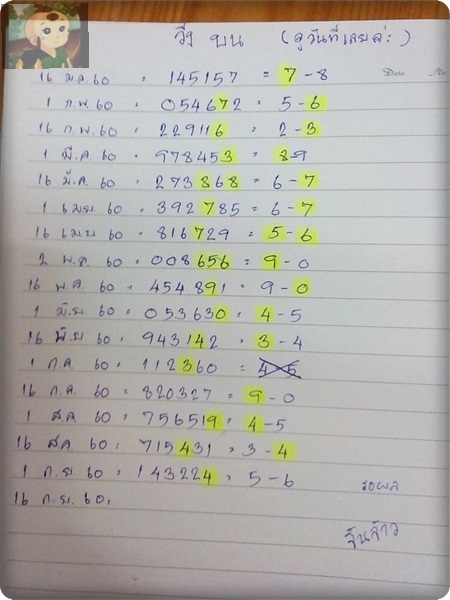 วิ่ง บน (ดูวันที่เลยล่ะ)
Date No
16 ม.ค. 60 = 145157 = 7-8
1 ก.พ. 60 = 054672 = 5-6
16 ก.พ. 60 = 229116 = 2-3
1 มี.ค. 60 = 978453 = 89
16 มี.ค. 60 = 273868 = 6-7
1 เม.ย. 60 = 392785 = 6-7
16 เม.ย. 60 = 816729 = 5-6
2 พ.ค. 60 = 008656 = 9-0
16 พ.ค. 60 = 454891 = 9-0
1 มิ.ย. 60 = 053630 = 4-5
16 มิ.ย. 60 = 943142 = 3-4
1 ก.ค. 60 = 112360 = 4-5
16 ก.ค. 60 = 820327 = 9-0
1 ส.ค. 60 = 756519 = 4-5
16 ส.ค. 60 = 715431 = 3-4
1 ก.ย. 60 = 143224 = 5-6 รอผล
16 ก.ย. 60 =